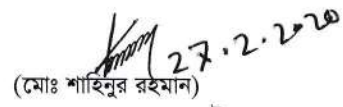 27.2.2020
(মোঃ শাহিনুর রহমান)